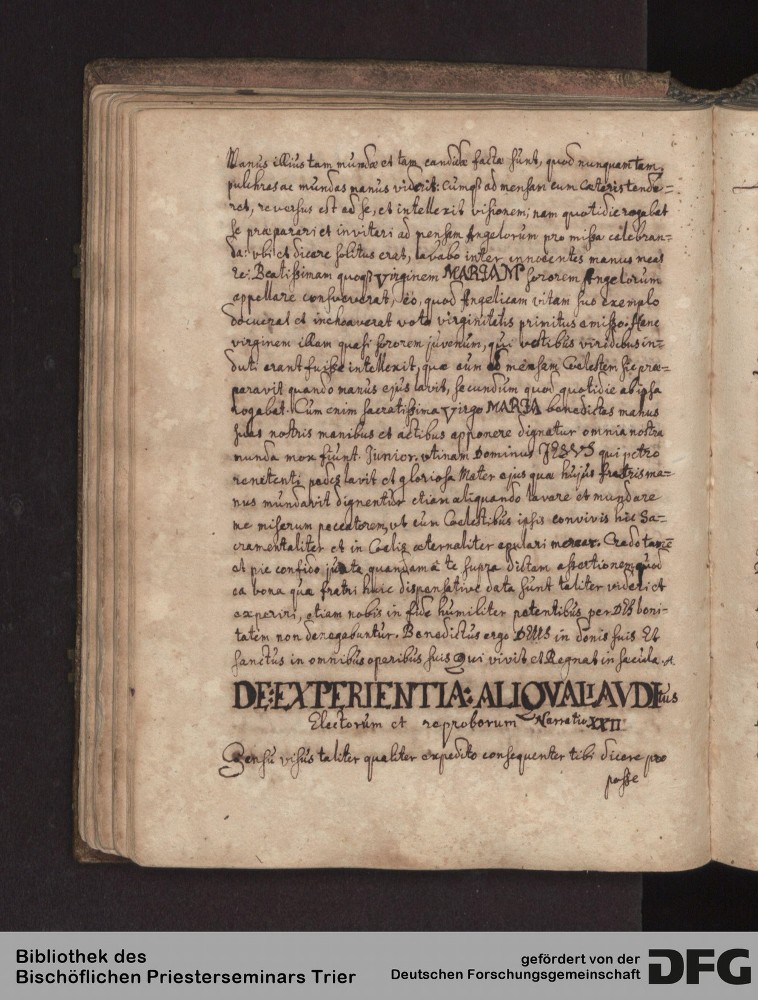 Manus illius tam mundæ et tam candidæ factæ sunt, quod nunquam tam
pulchras ac mundas manus viderit: Cumq3 ad mensam cum cæteris tende=
ret, reversus est ad se, et intellexit visionem; nam quotidie rogabat
se præparari et invitari ad mensam Angelorum pro missa celebran=
da: vbi et dicere solitus erat, lavabo inter innocentes manus meas
Beatissimam quoq3 virginem MARIAM sororem Angelorum
appellare consueverat, eo, quod Angelicam vitam suo exemplo
docuerat et inchoaverat voto virginitatis primitus emisso. Hanc
virginem illam quasi sororem juvenum, qui vestibus viridibus in=
duti erant fuisse intellexit, quæ eum ad mensam Coelestem sic præ=
paravit quando manus ejus lavit, secundum quod quotidie ab ipsa
rogabat. Cum enim sacratissima virgo MARIA benedictas manus
suas nostris manibus et actibus apponere dignatur omnia nostra
munda mox fiunt. Junior. vtinam Dominus JESVS qui petro
renitenti pedes lavit et gloriosa Mater ejus quæ hujus fratris ma=
nus mundavit dignentur etiam aliquando lavare et mundare
me miserum peccatorem, vt cum Coelestibus ipsis convivis hic Sa=
cramentaliter et in Coelis æternaliter epulari merear. Credo tamē
et pie confido juxta quandam â te supra dictam assertionem, quod
ea bona quæ fratri huic dispensative data sunt taliter videri et
experiri, etiam nobis in fide humiliter petentibus per DEI boni=
tatem non denegabuntur. Benedictus ergo DEUS in donis suis Et
sanctus in omnibus operibus suis Qui vivit et Regnat in sæcula. A.
DE: EXPERIENTIA: ALIQVALI AVDItus
Electorum et reproborum Narratio XXII
Sensu visus taliter qualiter expedito consequenter tibi dicere pro
posse
Bibliothek des
Bischöflichen Priesterseminars Trier
gefördert von der
Deutschen Forschungsgemeinschaft
DFG